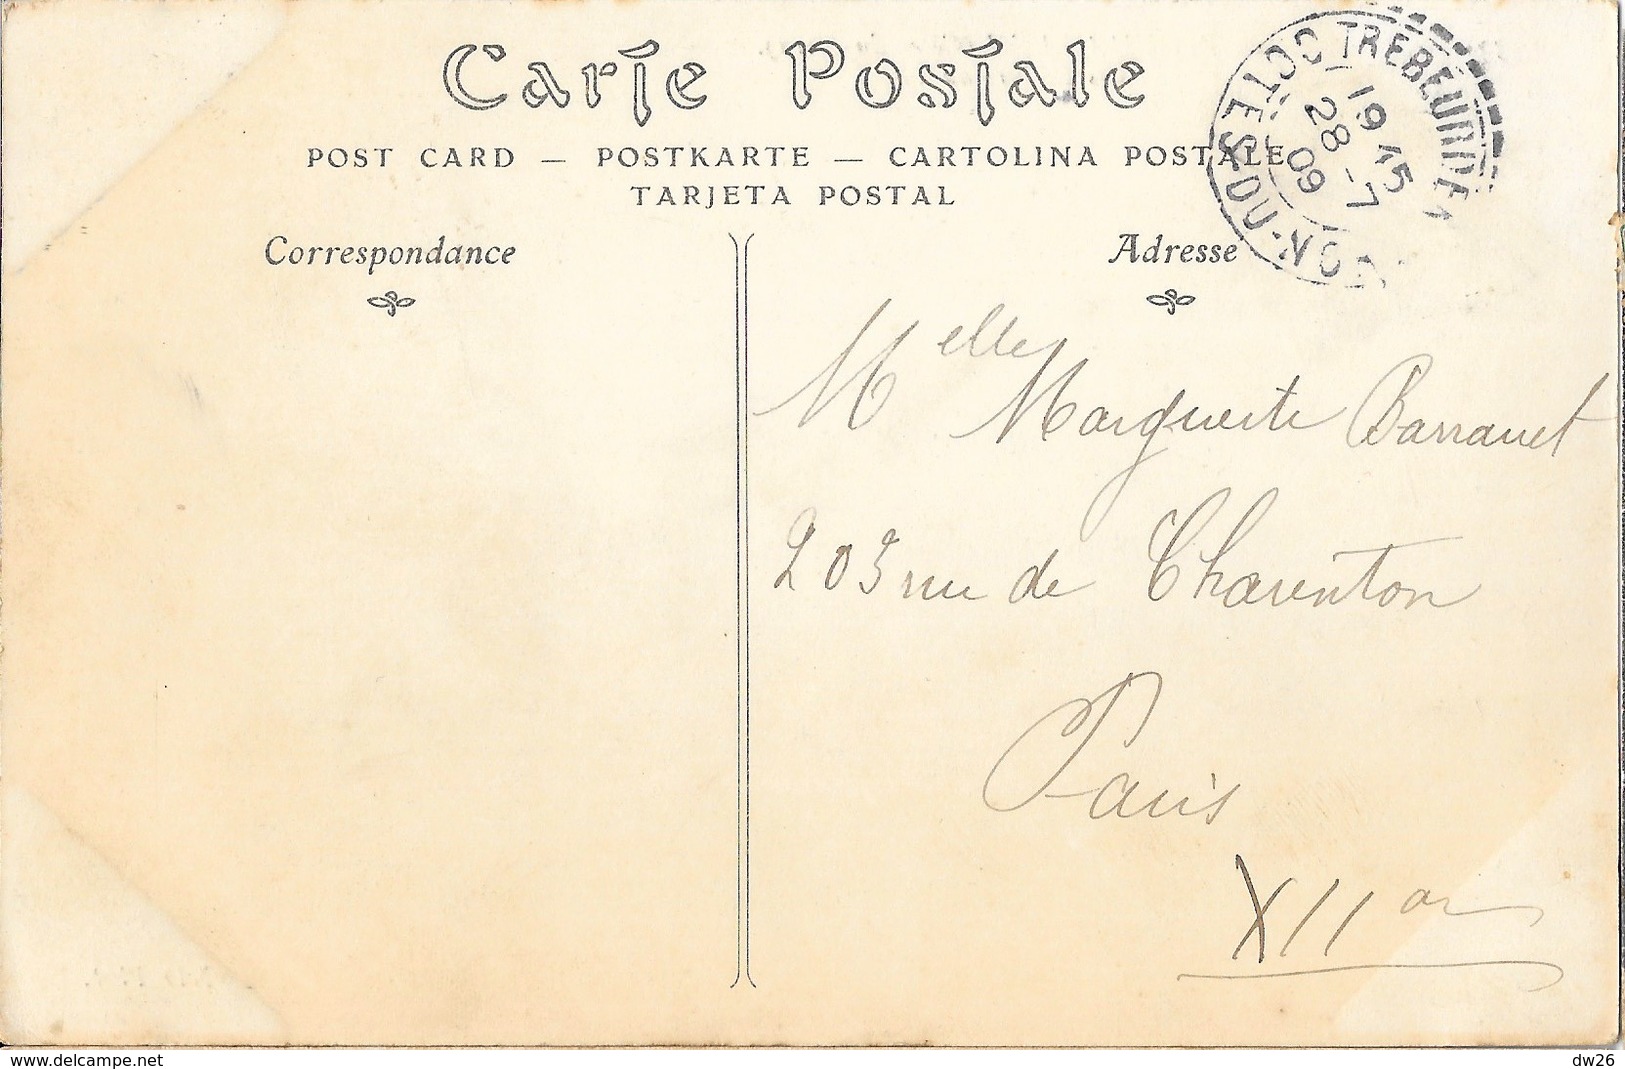 Carte Postale
POST CARD — POSTKARTE — CARTOLINA POSTALE
TARJETA POSTAL
Correspondance
Adresse
TREBEURDEN
19 45
28 -7
09
COTES-DU-NORD
Melle Marguerite Barrauet
203 rue de Charenton
Paris
XII ar
www.delcampe.net
dw26